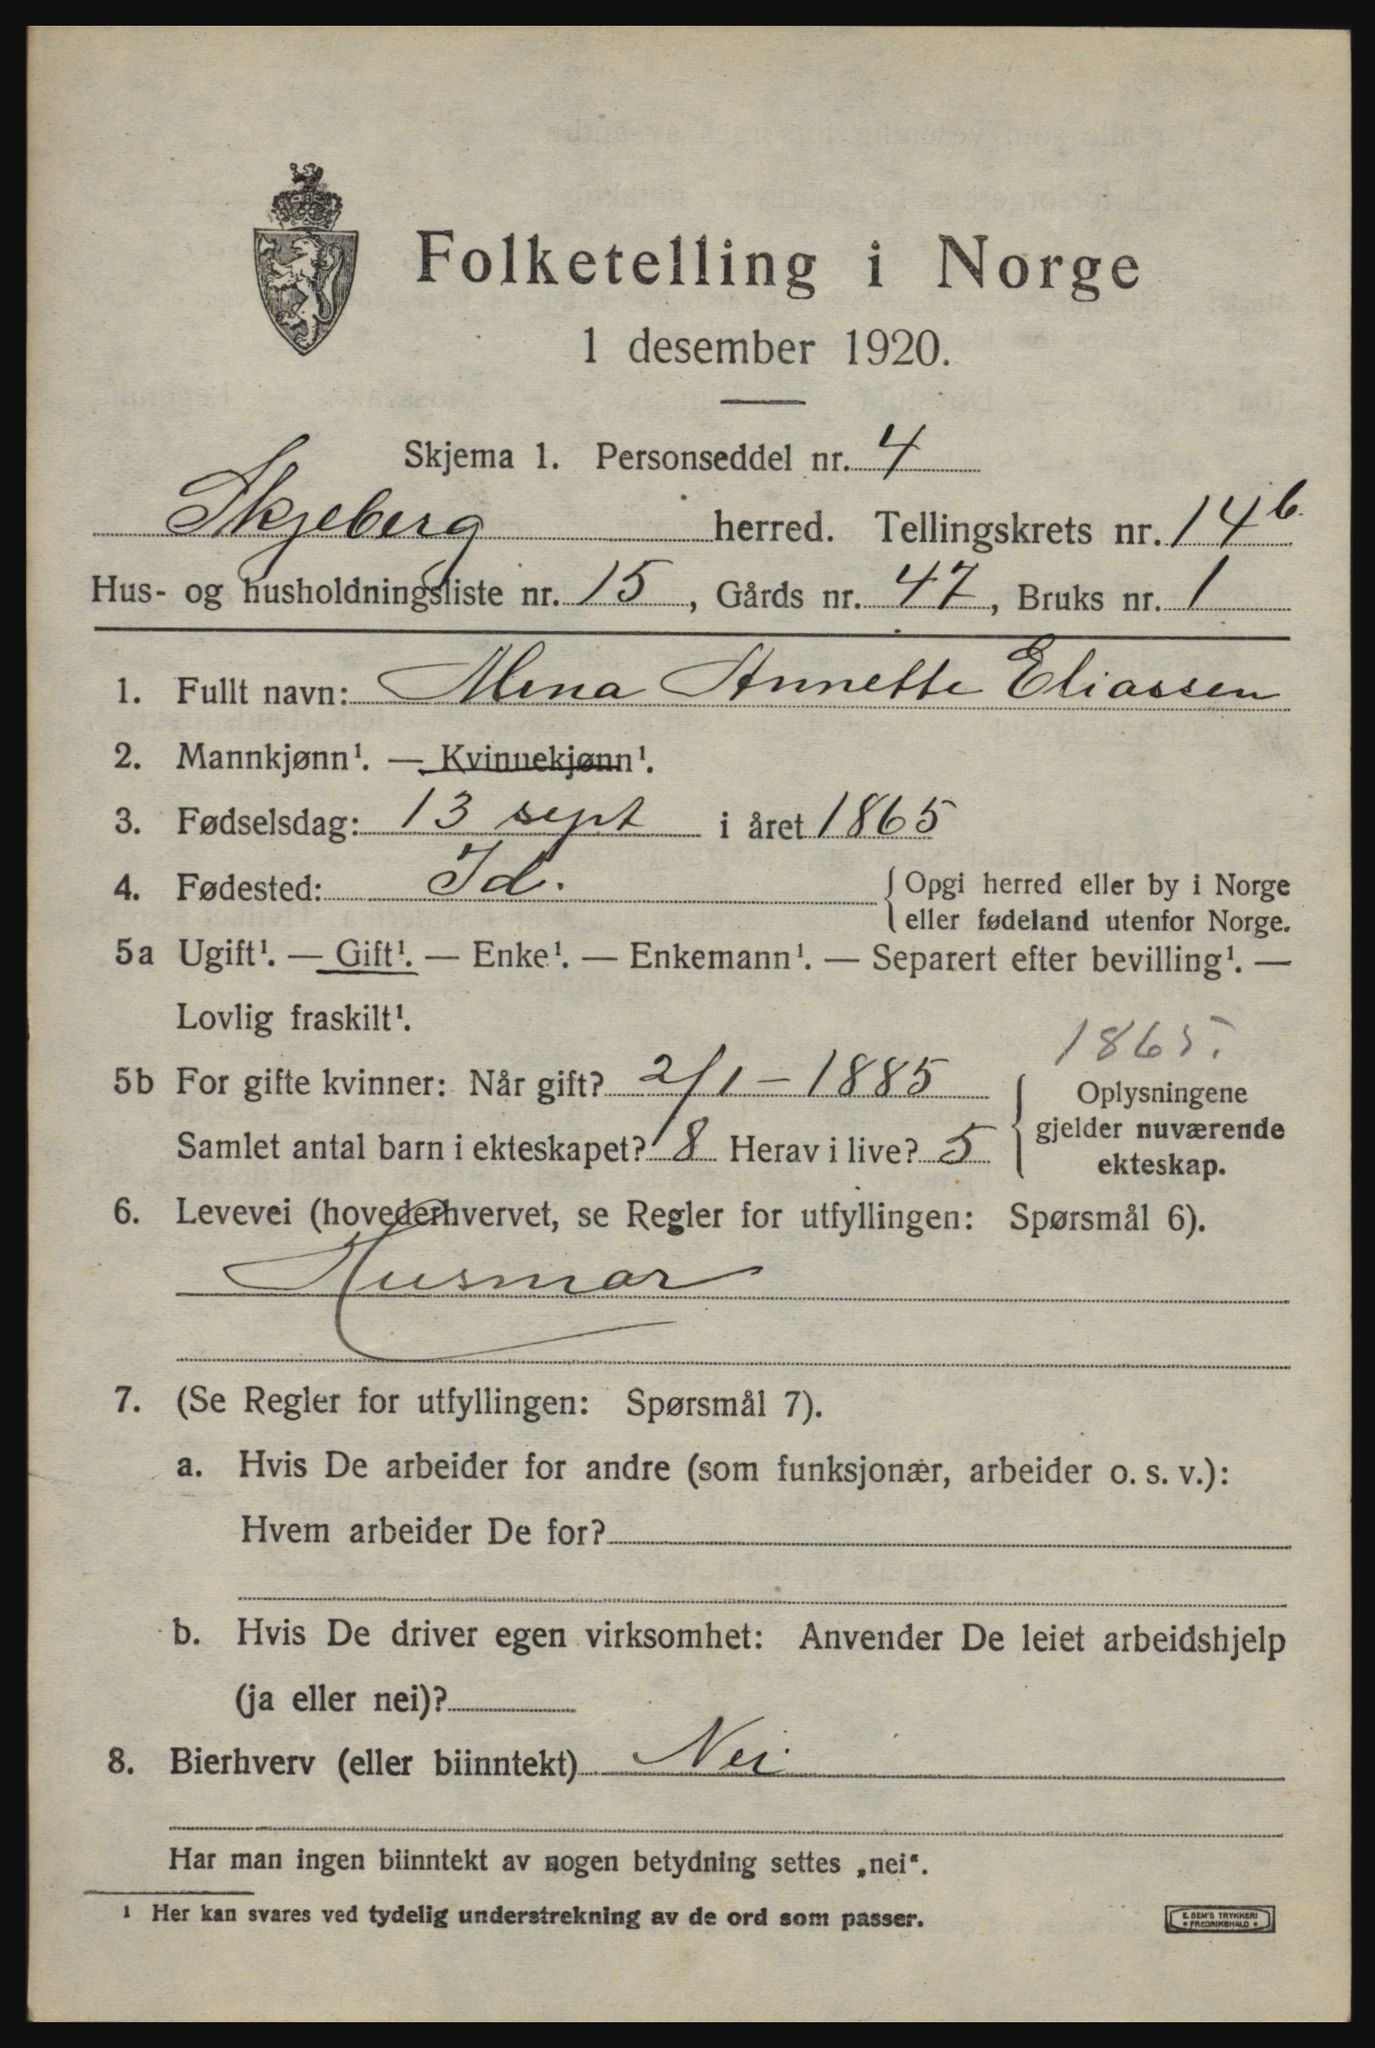 Folketelling i Norge
1 desember 1920.
Skjema 1. Personseddel nr. 4
Skjeberg herred. Tellingskrets nr. 14b
Hus- og husholdningsliste nr. 15, Gårds nr. 47, Bruks nr. 1
1. Fullt navn: Mena Annette Eliassen
2. Mannkjønn¹. — Kvinnekjønn¹.
3. Fødselsdag: 13 sept i året 1865
4. Fødested: Id. { Opgi herred eller by i Norge
eller fødeland utenfor Norge.
5a Ugift¹. — Gift¹. — Enke¹. — Enkemann¹. — Separert efter bevilling¹. —
Lovlig fraskilt¹.
1865.
5b For gifte kvinner: Når gift? 2/1 - 1885
Samlet antal barn i ekteskapet? 8 Herav i live? 5
{ Oplysningene
gjelder nuværende
ekteskap.
6. Levevei (hovederhvervet, se Regler for utfyllingen: Spørsmål 6).
Husmor
7. (Se Regler for utfyllingen: Spørsmål 7).
a. Hvis De arbeider for andre (som funksjonær, arbeider o. s. v.):
Hvem arbeider De for?
b. Hvis De driver egen virksomhet: Anvender De leiet arbeidshjelp
(ja eller nei)?
8. Bierhverv (eller biinntekt) Nei
Har man ingen biinntekt av nogen betydning settes „nei“.
¹ Her kan svares ved tydelig understrekning av de ord som passer.
E. SEM'S TRYKKERI
• FREDRIKSHALD •